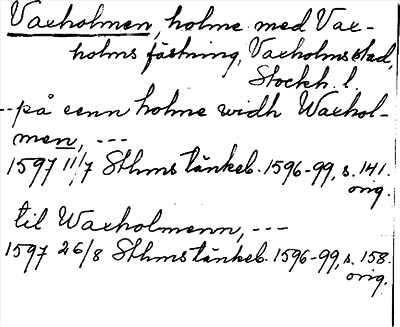 Vaxholmen, holme med Vax-
holms fästning, Vaxholms stad,
Stockh. l.
--på eenn holme widh Waxhol-
men, ---
1597 11/7 Sthms tänkeb. 1596-99, s. 141.
orig.
til Waxholmenn, ---
1597 26/8 Sthms tänkeb. 1596-99, s. 158.
orig.